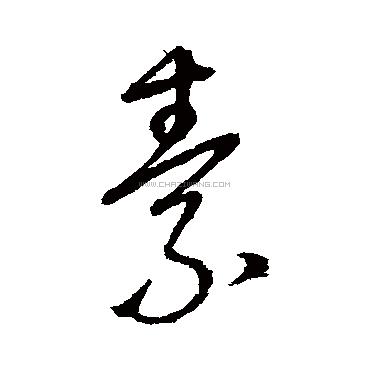 素
WWW.CHAZIWANG.COM